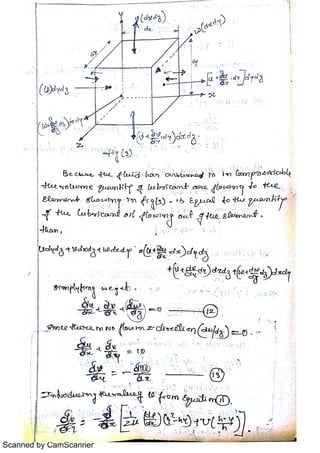 y
v(dxdz)
w(dxdy)
dx
dy
[u+∂u/∂x·dx]dydz
(u)dydz
x
(v+∂v/∂y·dy)dxdz
z
Fig (3)
Because the fluid has assumed is incompressible
the volume quantity of lubricant are flowing to the
element showing in fig(3). is Equal to the quantity
of the lubricant oil flowing out of the element.
than,
udydz + vdxdz + wdxdy = (u+∂u/∂x dx)dydz
+(v+∂v/∂y dy)dxdz +(w+∂w/∂z dz)dxdy
Simplyfying we get.
∂u/∂x + ∂v/∂y + ∂w/∂z = 0 —— (12)
Since there is no flow in z-direction (dw/dz) = 0.
∂u/∂x + ∂v/∂y = 0
∂v/∂y = - ∂u/∂x —— (13)
Introducing the value of u from Equation (11),
Scanned by CamScanner